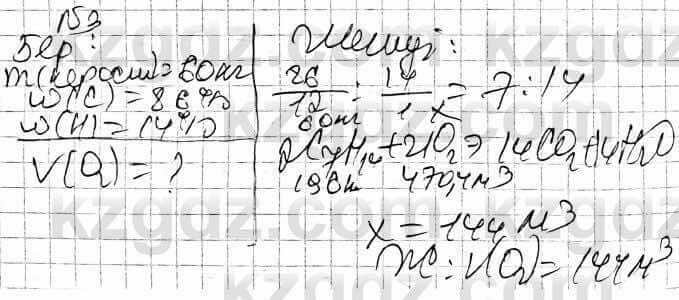 №3
Бер:
m(керосин)=60кг
w(C)=86%
w(H)=14%
V(O₂)=?
Шешуі:
86/12 : 14/1 = 7:14
60кг x
2C₇H₁₄+21O₂→14CO₂+14H₂O
196кг 470,4м³
x=144м³
Ж: V(O₂)=144м³
kzgdz.com